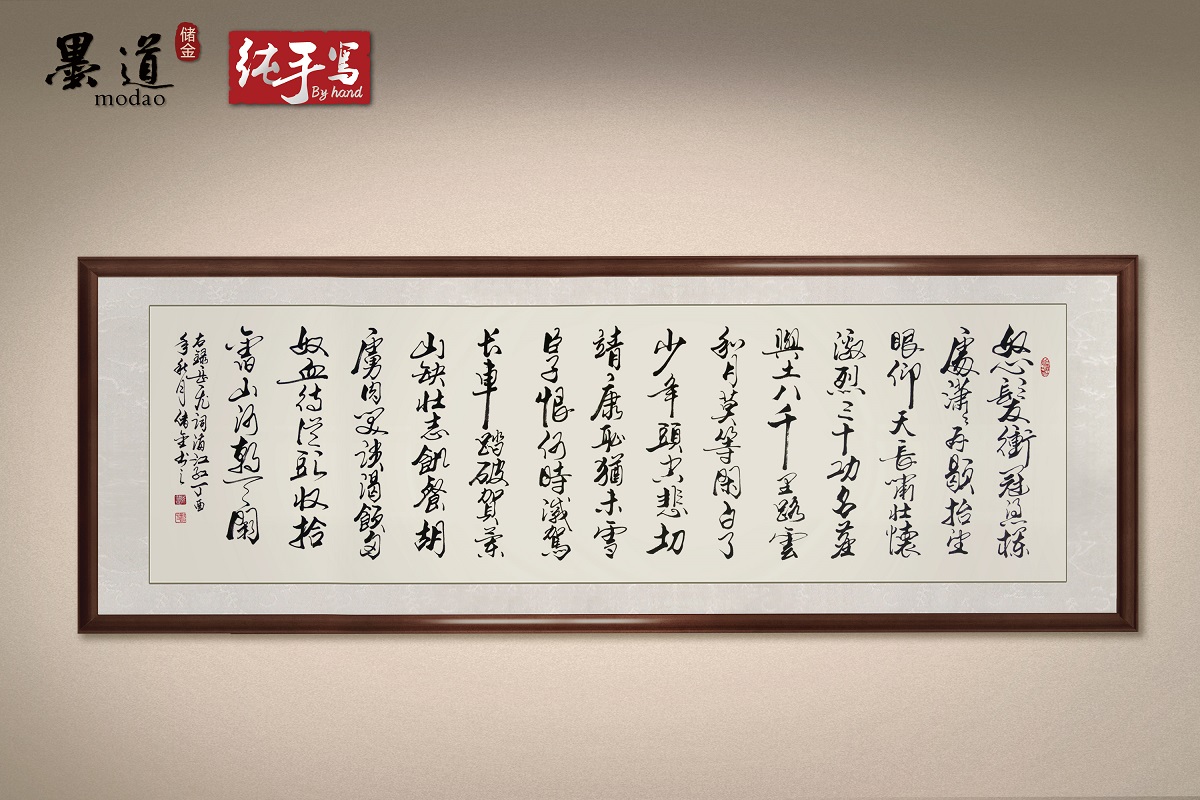 墨道
储金
modao
纯手写
By hand
怒髮衝冠憑欄
處瀟瀟雨歇抬望
眼仰天長嘯壯懷
激烈三十功名塵
與土八千里路雲
和月莫等閑白了
少年頭空悲切
靖康恥猶未雪
臣子恨何時滅駕
长車踏破賀蘭
山缺壯志飢餐胡
虜肉笑談渴飲匈
奴血待從頭收拾
舊山河朝天闕
右錄岳飛詞滿江紅丁酉
年秋月儲金書